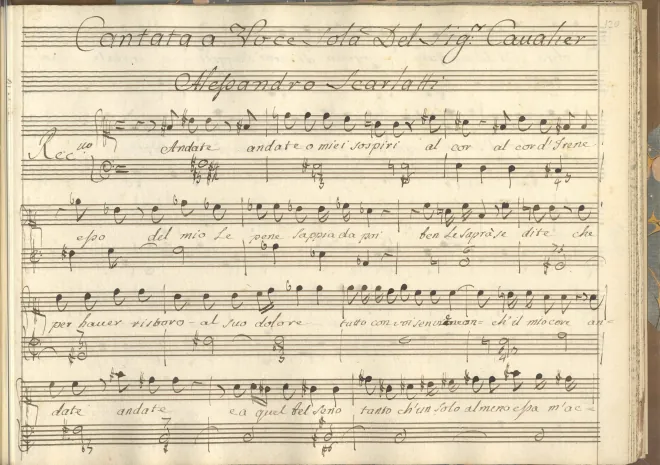 Cantata a Voce Sola Del Sig.r Cavalier
Alessandro Scarlatti
Rec.vo Andate andate o miei sospiri al cor al cor d'Irene
espo del mio Le pene sappia da poi ben Le saprà se dite che
per haver ristoro al suo dolore tutto con voi sen ch'il mio core an=
date andate e a quel bel seno tanto ch'un solo almeno espa m'ac=